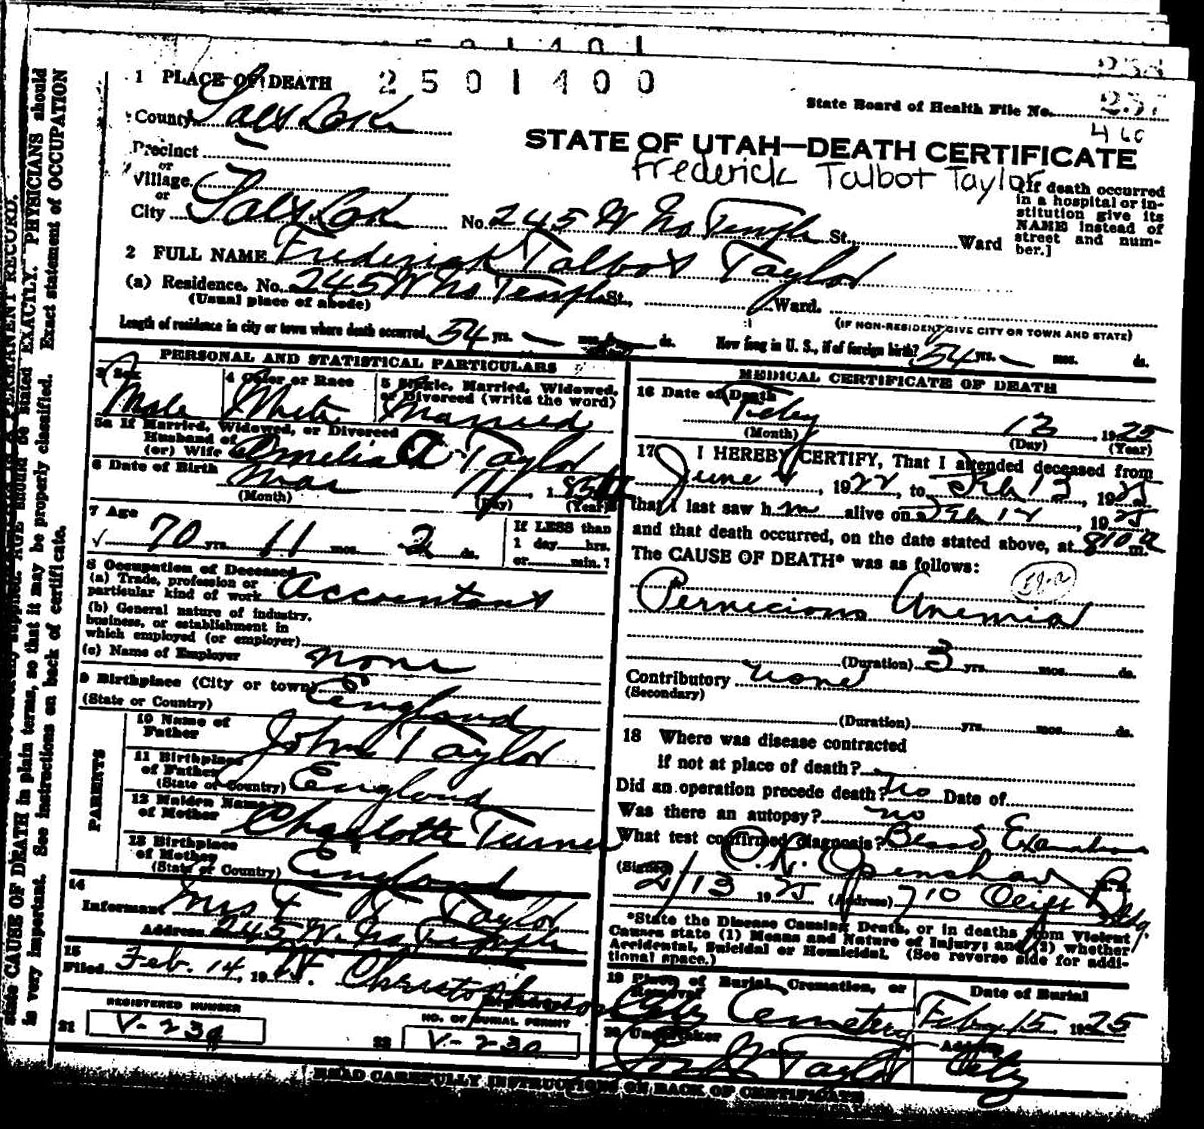 2501400
1 PLACE OF DEATH
State Board of Health File No.
County Salt Lake
460
STATE OF UTAH—DEATH CERTIFICATE
Precinct
Frederick Talbot Taylor
or
Village
or
City Salt Lake No. 245 W No Temple St. Ward
[If death occurred
in a hospital or in-
stitution give its
NAME instead of
street and num-
ber.]
2 FULL NAME Frederick Talbot Taylor
(a) Residence. No. 245 W No Temple St., Ward.
(Usual place of abode)
(IF NON-RESIDENT GIVE CITY OR TOWN AND STATE)
Length of residence in city or town where death occurred 54 yrs. — mos. ds. How long in U. S., if of foreign birth? 54 yrs. — mos. ds.
PERSONAL AND STATISTICAL PARTICULARS
3 Sex
Male
4 Color or Race
White
5 Single, Married, Widowed,
or Divorced (write the word)
Married
5a If Married, Widowed, or Divorced
Husband of
(or) Wife of Amelia A Taylor
6 Date of Birth Mar 11, 185
(Month) (Day) (Year)
7 Age
70 yrs. 11 mos. 2 ds.
If LESS than
1 day hrs.
or min.?
8 Occupation of Deceased
(a) Trade, profession or
particular kind of work Accountant
(b) General nature of industry,
business, or establishment in
which employed (or employer)
(c) Name of Employer none
9 Birthplace (City or town)
(State or Country) England
PARENTS
10 Name of
Father John Taylor
11 Birthplace
of Father
(State or Country) England
12 Maiden Name
of Mother Charlotte Turner
13 Birthplace
of Mother
(State or Country) England
14
Informant Mrs F T Taylor
Address 245 W. No Temple
15
Filed Feb. 14, 19
REGISTERED NUMBER
21 V-230
NO. OF BURIAL PERMIT
22 V-230
MEDICAL CERTIFICATE OF DEATH
16 Date of Death
Feby 13, 1925
(Month) (Day) (Year)
17 I HEREBY CERTIFY, That I attended deceased from
June, 1922, to Feb 13, 1925
that I last saw him alive on Feb 12, 1925
and that death occurred, on the date stated above, at 810 a m.
The CAUSE OF DEATH* was as follows:
Pernicious Anemia
(Duration) 3 yrs. mos. ds.
Contributory none
(Secondary)
(Duration) yrs. mos. ds.
18 Where was disease contracted
if not at place of death?
Did an operation precede death? no Date of
Was there an autopsy? no
What test confirmed diagnosis? Blood Examination
(Signed) Openshaw
2/13 1925 (Address) 710 Bldg.
*State the Disease Causing Death, or in deaths from Violent
Causes state (1) Means and Nature of Injury; and (2) whether
Accidental, Suicidal or Homicidal. (See reverse side for addi-
tional space.)
19 Place of Burial, Cremation, or
Removal City Cemetery
Date of Burial
Feby 15 1925
20 Undertaker
Jos Wm Taylor
Address
City
READ CAREFULLY INSTRUCTIONS ON BACK OF CERTIFICATE
PERMANENT RECORD.
AGE should be stated EXACTLY. PHYSICIANS should
state CAUSE OF DEATH in plain terms, so that it may be properly classified. Exact statement of OCCUPATION
is very important. See instructions on back of certificate.